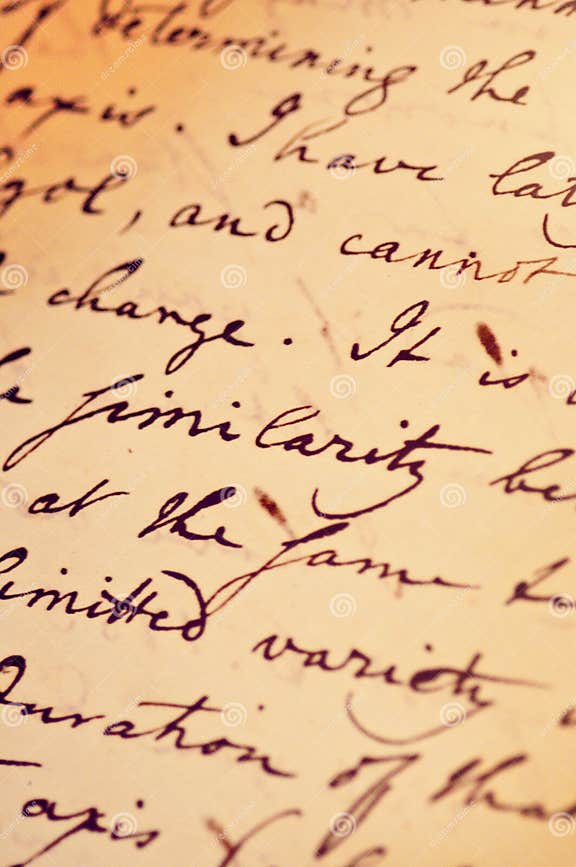 of determining the
axis. I have lat
gol, and cannot
change. It is
similarity be
at the same t
limitted variety
Duration of tha
axis